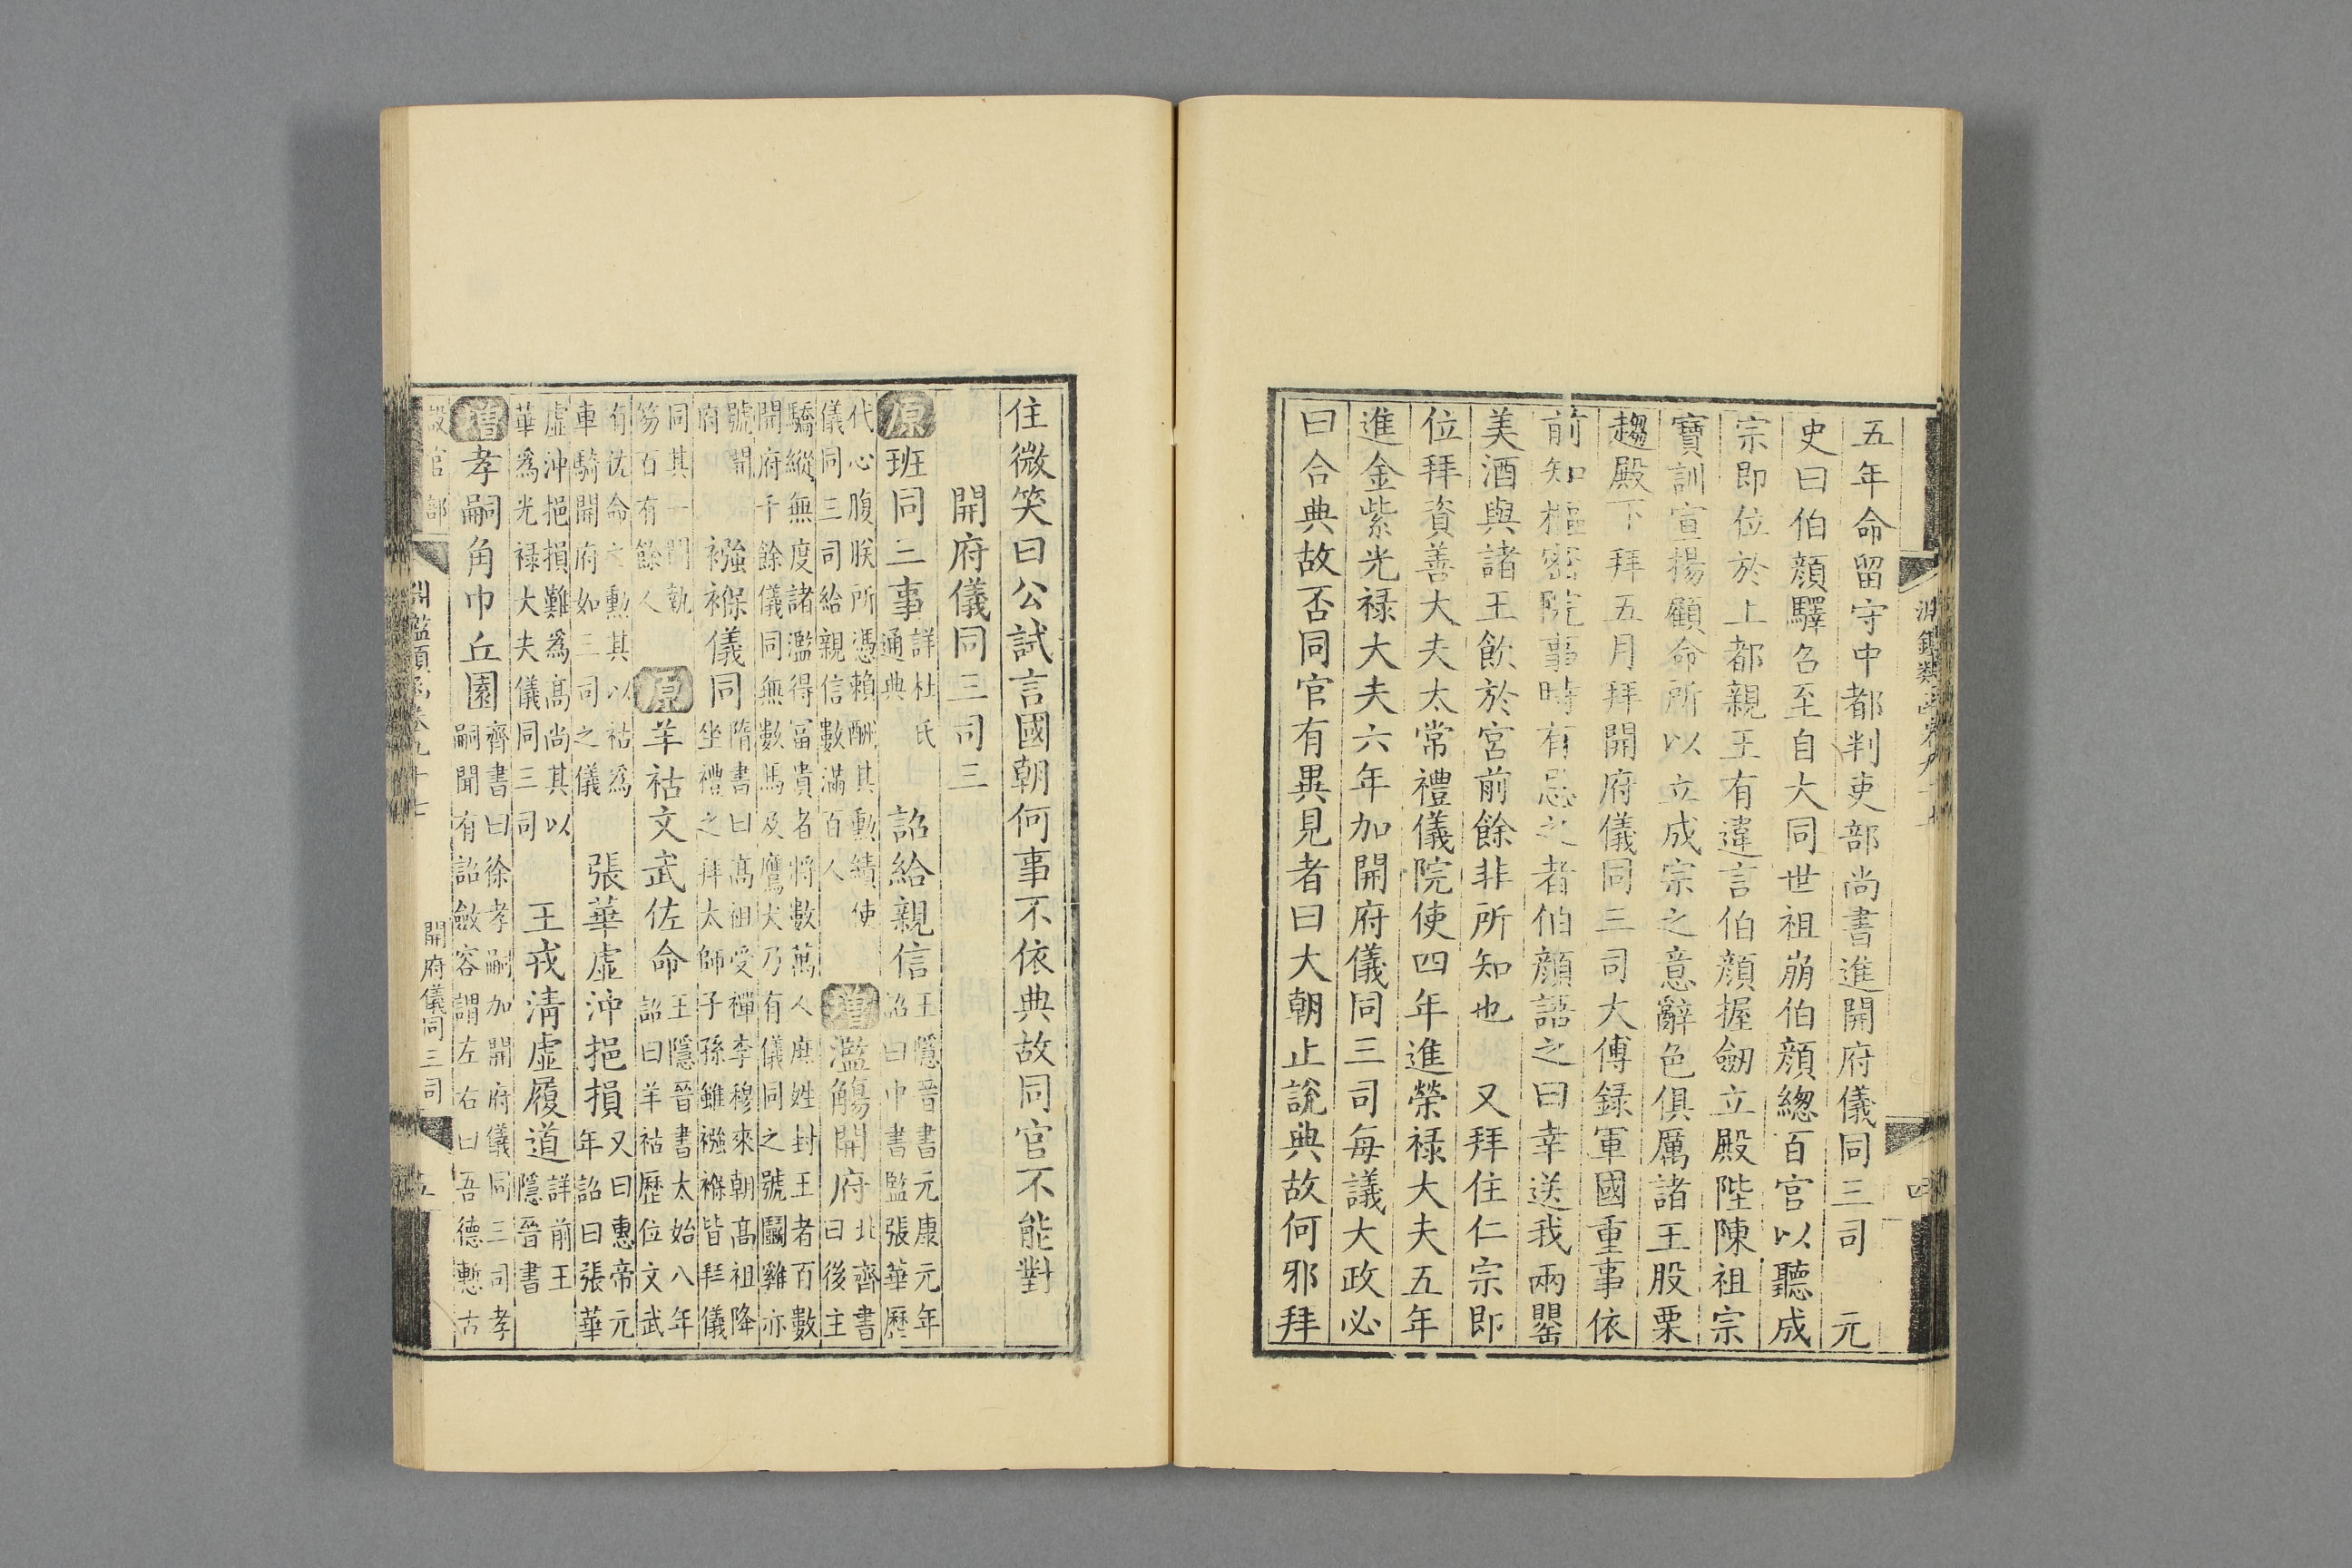 五年命留守中都判吏部尚書進開府儀同三司　元
史曰伯顔驛召至自大同世祖崩伯顔總百官以聽成
宗即位於上都親王有違言伯顔握劒立殿陛陳祖宗
寶訓宣揚顧命所以立成宗之意辭色俱厲諸王股栗
趨殿下拜五月拜開府儀同三司大傅録軍國重事依
前知樞密院事時有忌之者伯顔語之曰幸送我兩罌
美酒與諸王飲於宮前餘非所知也　又拜住仁宗即
位拜資善大夫太常禮儀院使四年進榮禄大夫五年
進金紫光禄大夫六年加開府儀同三司每議大政必
曰合典故否同官有異見者曰大朝止說典故何邪拜
住微笑曰公試言國朝何事不依典故同官不能對
開府儀同三司三
原班同三事
詳杜氏
通典
詔給親信
王隱晉書元康元年
詔曰中書監張華歷
代心腹朕所憑賴酬其勳績使
儀同三司給親信數滿百人
增濫觴開府
北齊書
曰後主
驕縱無度諸濫得富貴者將數萬人庶姓封王者百數
開府千餘儀同無數馬及鷹犬乃有儀同之號鬭雞亦
號開
府
襁褓儀同
隋書曰高祖受禪李穆來朝高祖降
坐禮之拜太師子孫雖襁褓皆拜儀
同其一門執
笏百有餘人
原羊祜文武佐命
王隱晉書太始八年
詔曰羊祜歷位文武
有佐命之勳其以祜爲
車騎開府如三司之儀
張華虛沖挹損
又曰惠帝元
年詔曰張華
虛沖挹損難爲高尚其以
華爲光禄大夫儀同三司
王戎清虛履道
詳前王
隱晉書
增孝嗣角巾丘園
齊書曰徐孝嗣加開府儀同三司孝
嗣聞有詔斂容謂左右曰吾德慙古
設官部
淵鑑類函卷九十七
開府儀同三司
五
淵鑑類函卷九十七
四